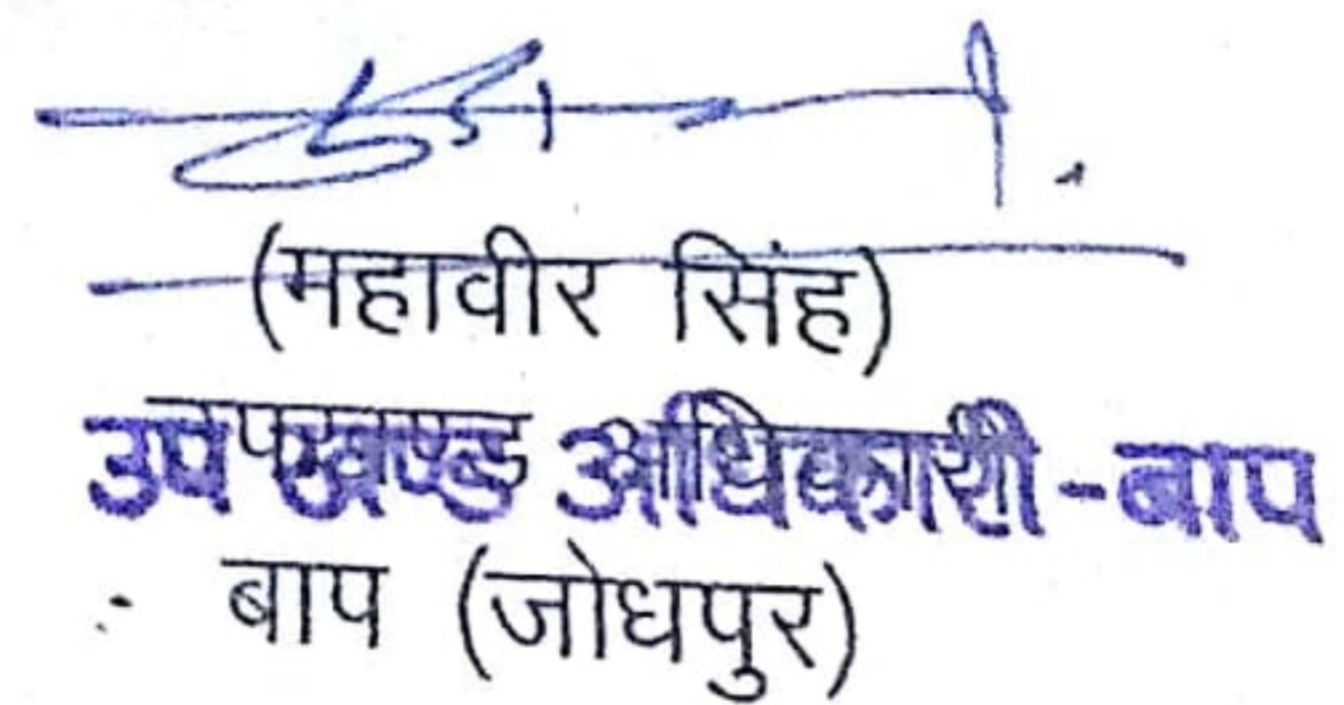 (महावीर सिंह)
उपखण्ड अधिकारी-बाप
बाप (जोधपुर)